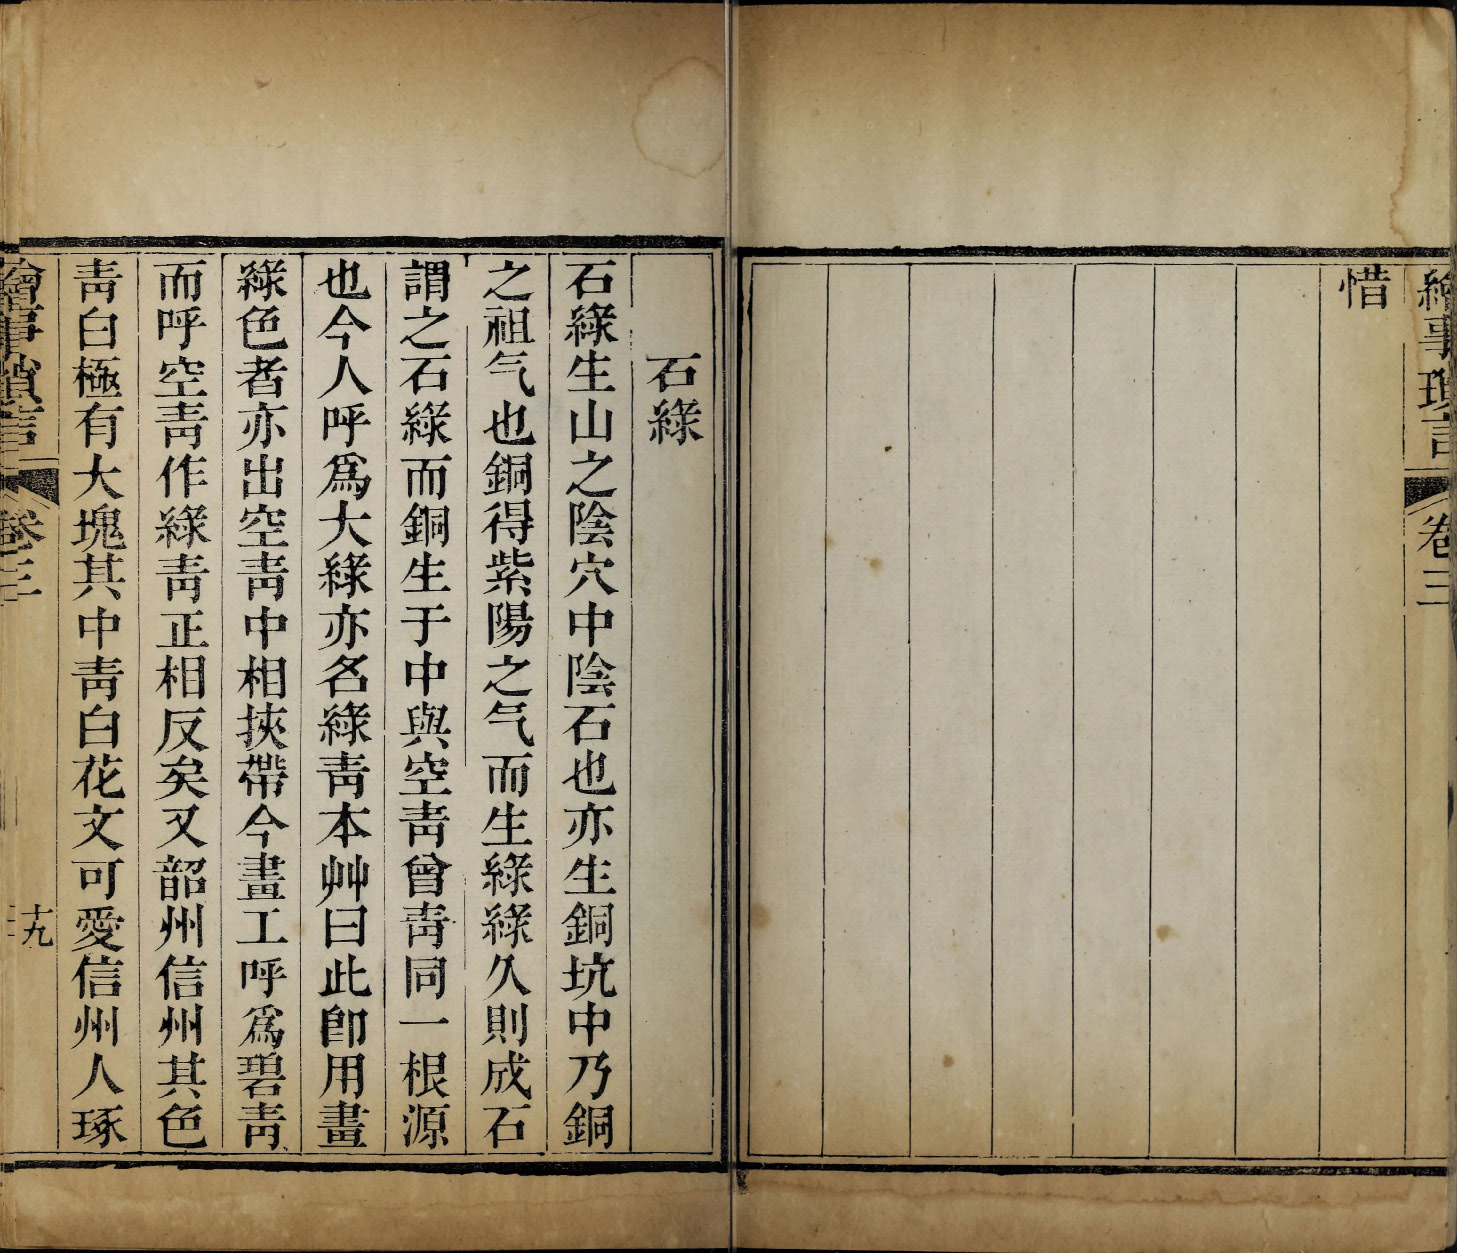 繪事瑣言 卷三
惜
石綠
石綠生山之陰穴中陰石也亦生銅坑中乃銅
之祖气也銅得紫陽之气而生綠綠久則成石
謂之石綠而銅生于中與空靑曾靑同一根源
也今人呼爲大綠亦名綠靑本艸曰此卽用畫
綠色者亦出空靑中相挾帶今畫工呼爲碧靑
而呼空靑作綠靑正相反矣又韶州信州其色
靑白極有大塊其中靑白花文可愛信州人琢
繪事瑣言 卷三 十九